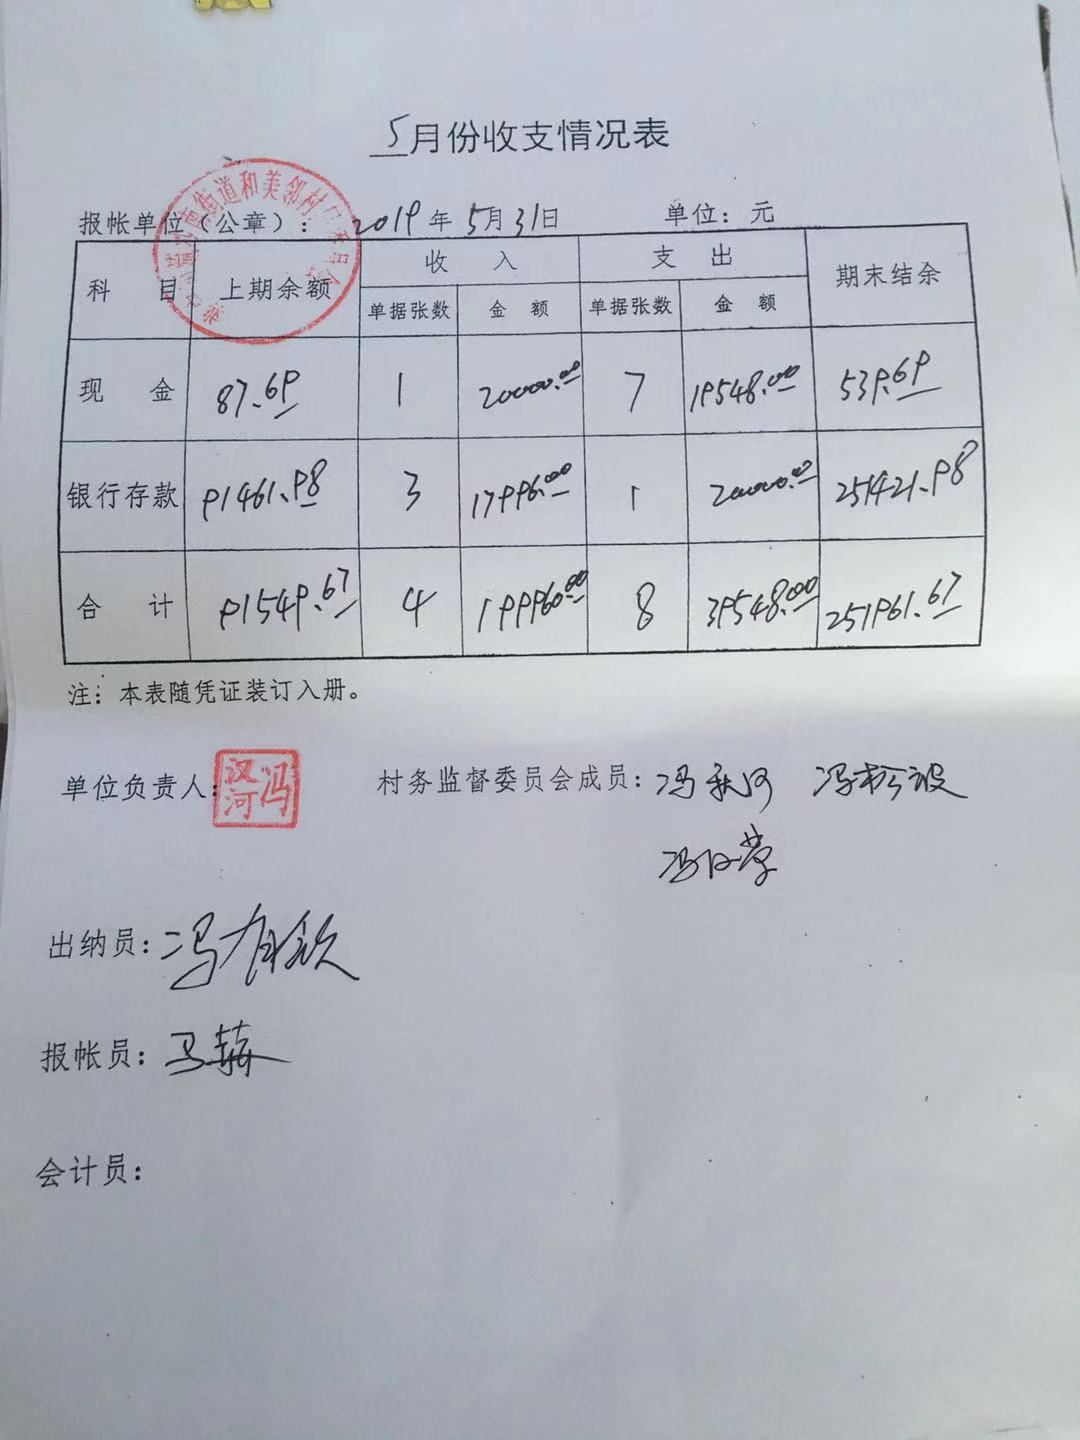 5月份收支情况表
报帐单位(公章): 2019年5月31日 单位: 元
街道和美邻村
科 目 上期余额 收 入 支 出 期末结余
单据张数 金 额 单据张数 金 额
现 金 87.69 1 20000.00 7 19548.00 539.69
银行存款 91461.98 3 179960.00 1 20000.00 251421.98
合 计 91549.67 4 199960.00 8 39548.00 251961.67
注: 本表随凭证装订入册。
单位负责人: 冯汉河 村务监督委员会成员: 冯秋河 冯松波
冯
出纳员: 冯有欽
报帐员: 马赫
会计员: